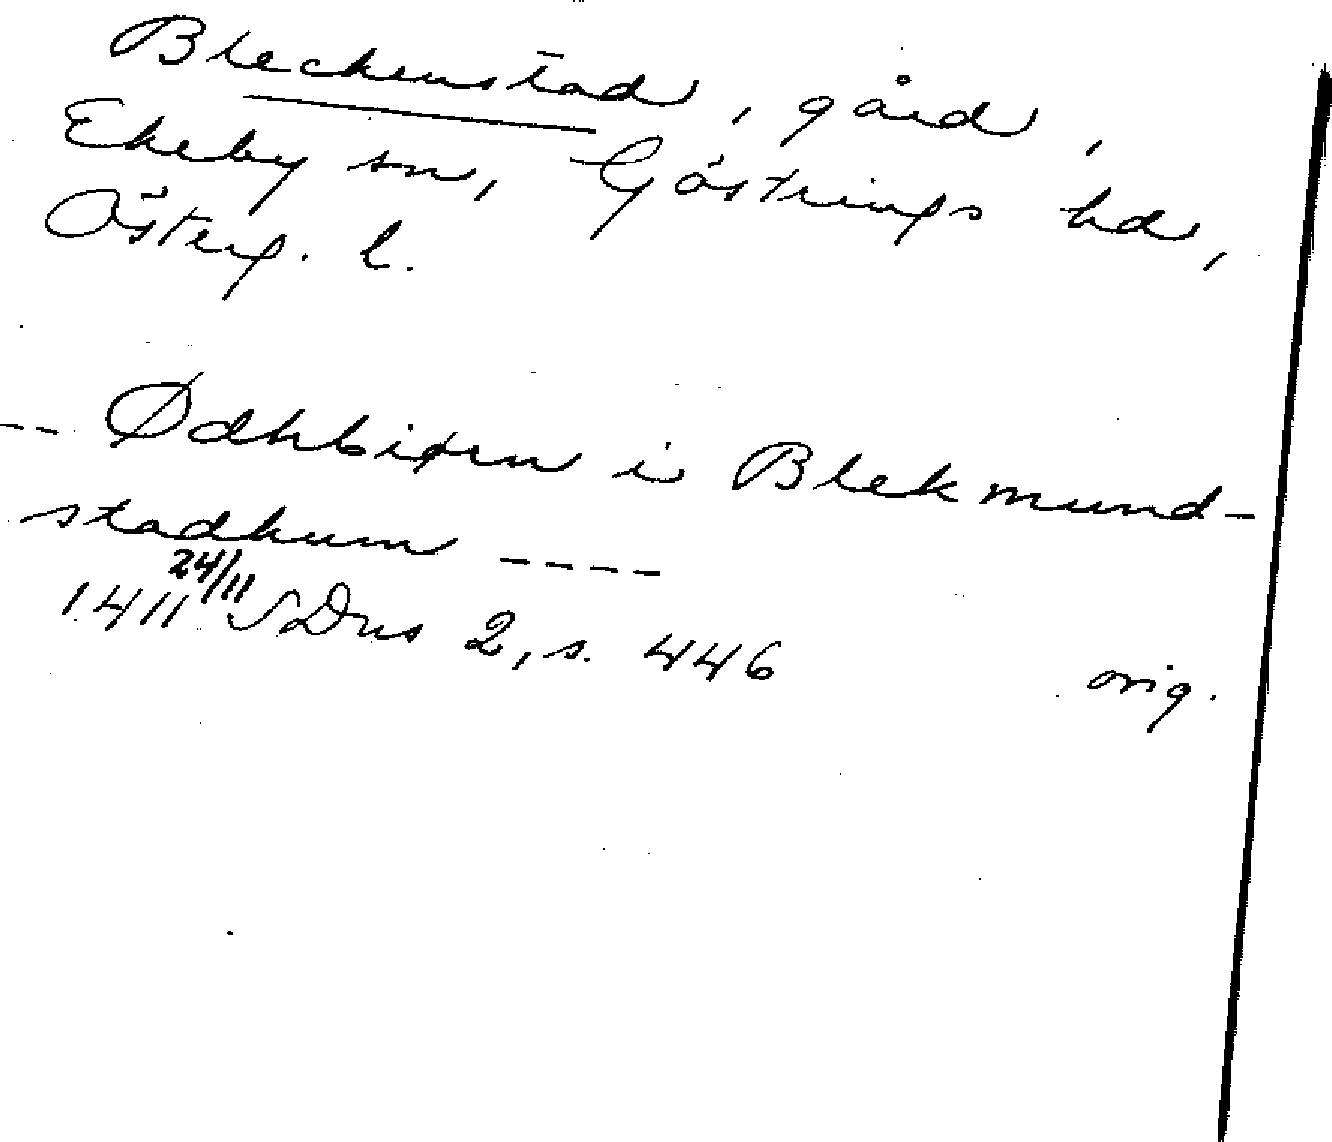 Bleckenstad, gård,
Ekeby sn, Göstrings hd,
Österg. l.
-- Ødhbiørn i Blekmund-
stadhum ----
1411 24/11 SDns 2, s. 446 orig.